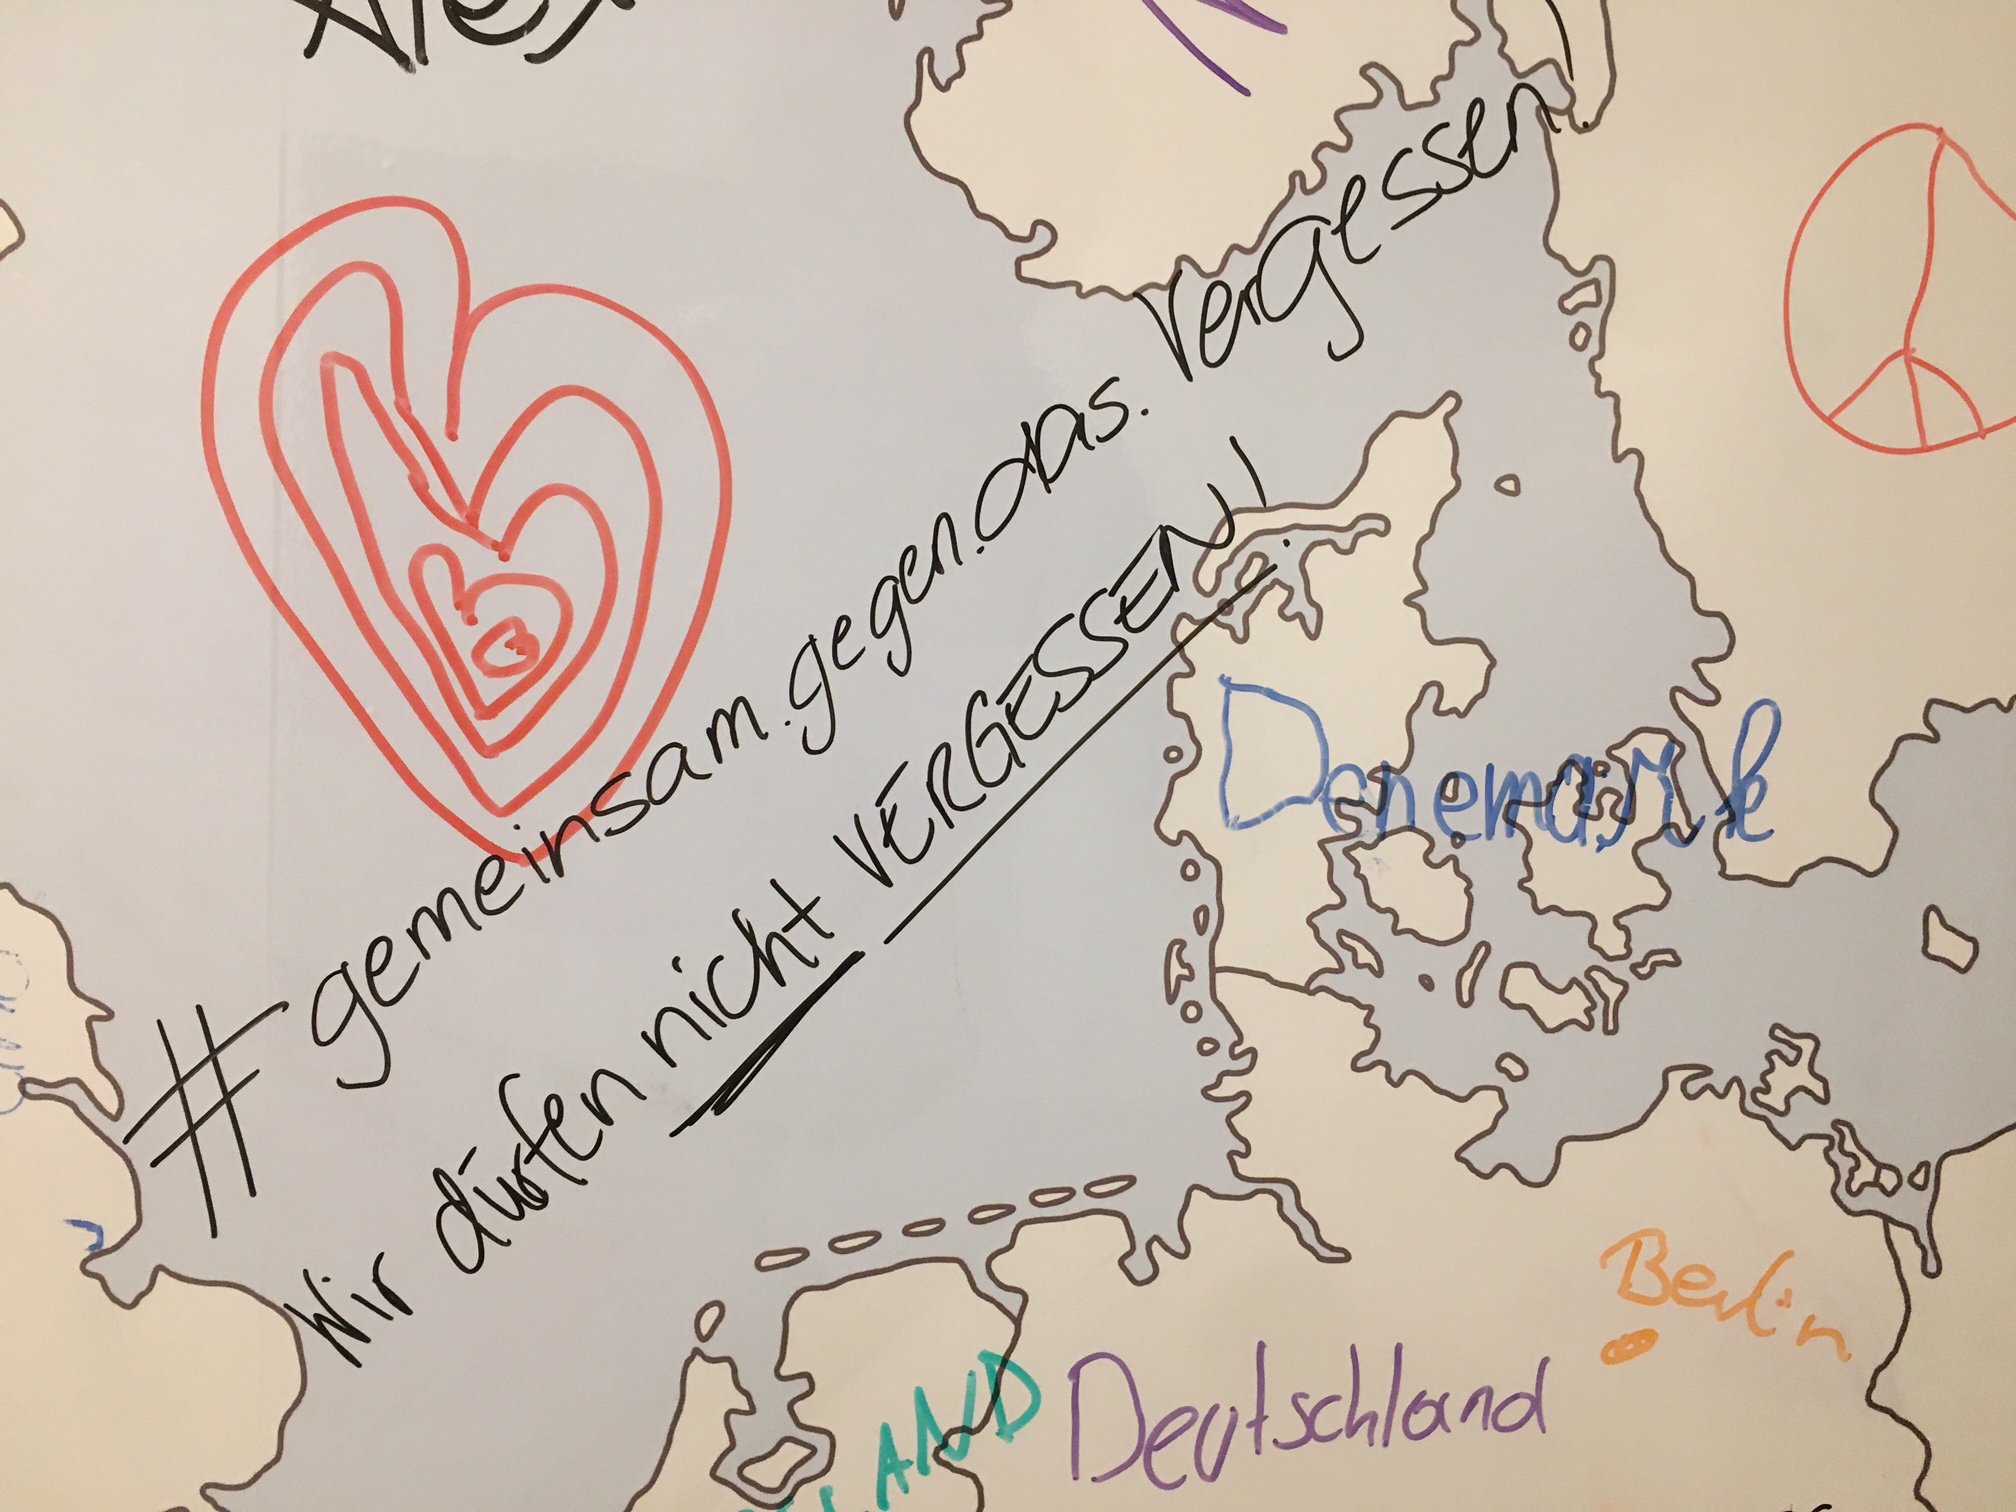 Alex
#gemeinsam.gegen.das.vergessen
Wir dürfen nicht VERGESSEN!
Denemark
Berlin
Deutschland
LAND